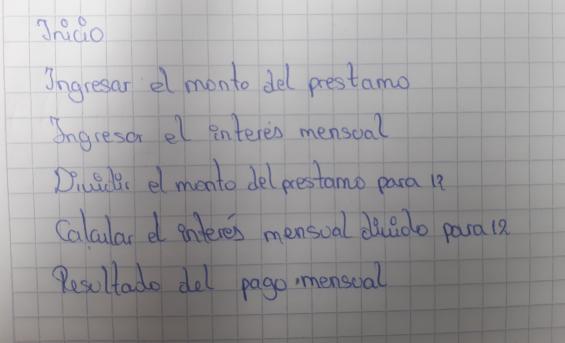 Inicio
Ingresar el monto del prestamo
Ingresar el interés mensual
Dividir el monto del prestamo para 12
Calcular el interés mensual divido para 12
Resultado del pago mensual